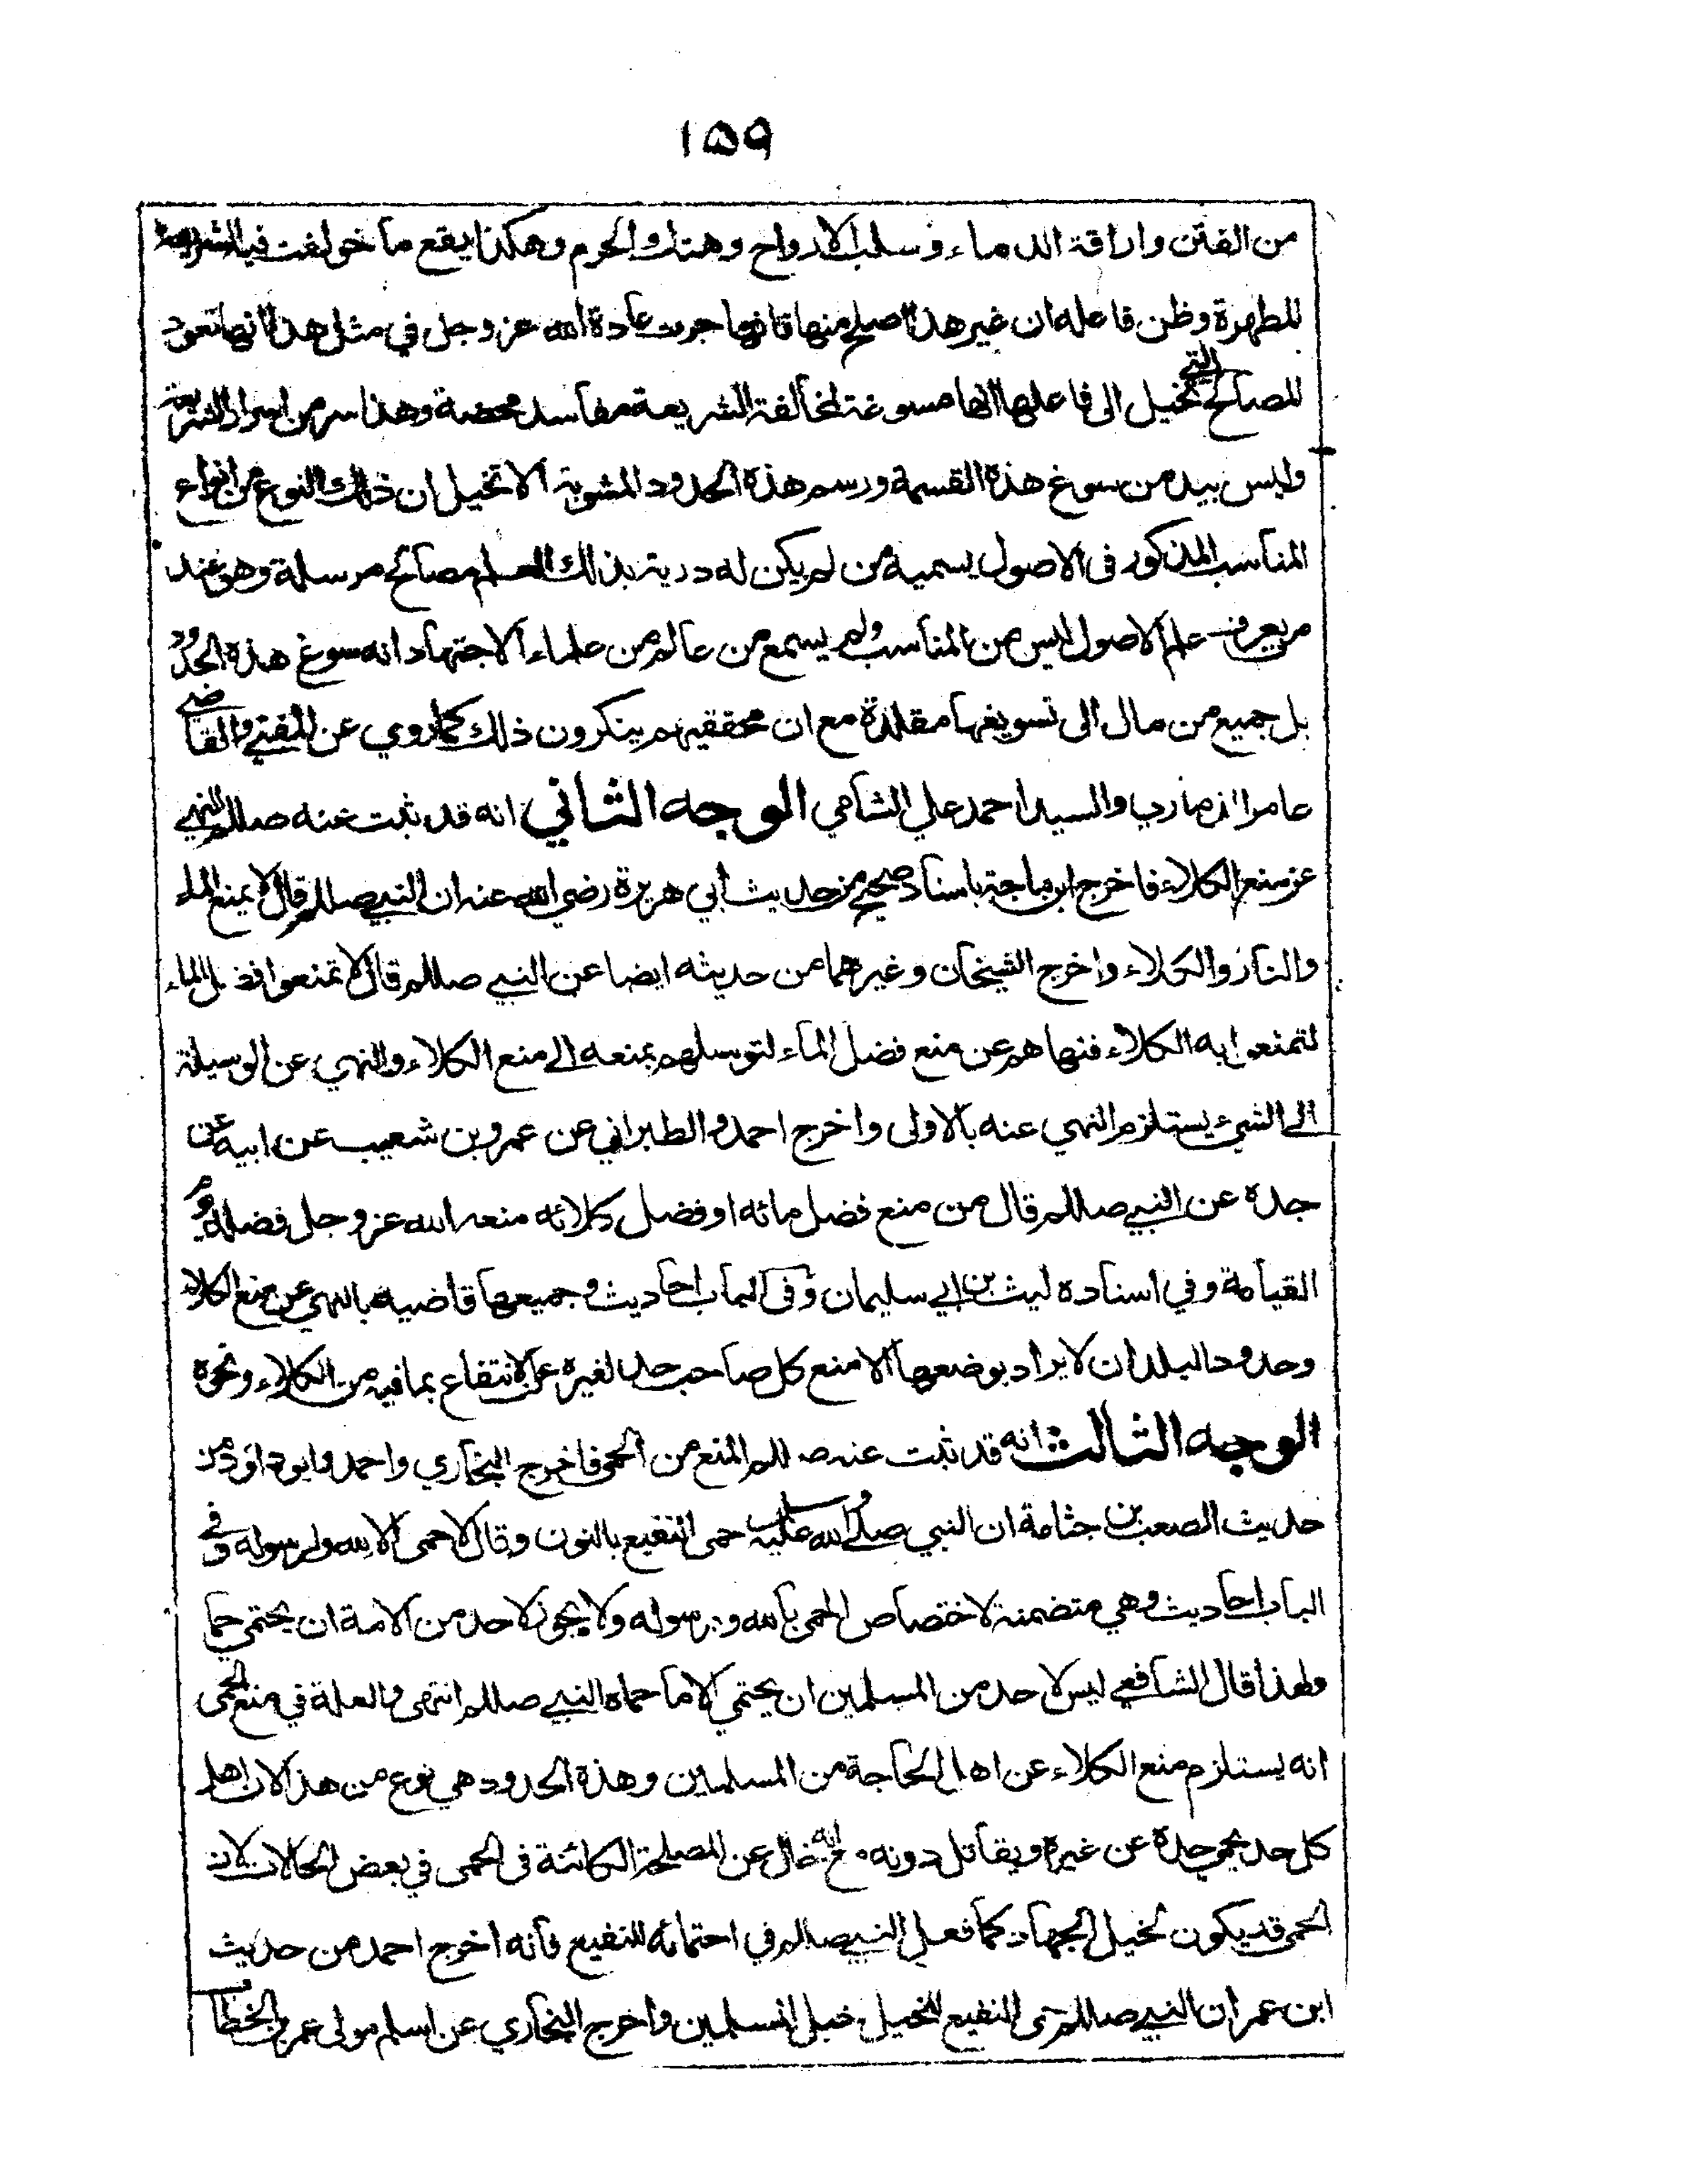 ١٥٩
من الفتن واراقة الدماء وسلب الارواح وهتك الحرم وهكذا يقع ما خولفت فيه الشريعة
المطهرة وظن فاعله ان غير هذا اصلح منها فانها جرت عادة الله عز وجل في مثل هذا انها تعود
المصالح التي تخيل الى فاعلها انها مسوغة لمخالفة الشريعة مفاسد محضة وهذا سر من اسرار الشريعة
وليس بيد من سوغ هذة القسمة ورسم هذة الحدود المشوبة الا تخيل ان ذلك النوع من انواع
المناسب المذكور فى الاصول يسميه من لم يكن له درية بذالك العلم مصالح مرسلة وهو عند
من يعرف علم الاصول ليس من المناسب ولم يسمع من عالم من علماء الاجتهاد انه سوغ هذة الحدود
بل جميع من مال الى تسويغها مقلدة مع ان محققيهم ينكرون ذلك كما روي عن المفتي والقاضي
عامر الذماري والسيد احمد علي الشامي الوجه الثاني انه قد ثبت عنه صللم النهي
عن منع الكلاء فاخرج ابن ماجة باسناد صحيح من حديث أبي هريرة رضي الله عنه ان النبي صللم قال لا يمنع الماء
والنار والكلاء واخرج الشيخان وغيرهما من حديثه ايضا عن النبي صللم قال لا تمنعوا فضل الماء
لتمنعوا به الكلاء فنهاهم عن منع فضل الماء لتوسلهم بمنعه الى منع الكلاء والنهي عن الوسيلة
الى الشيء يستلزم النهي عنه بالاولى واخرج احمد والطبراني عن عمرو بن شعيب عن ابيه عن
جدة عن النبي صللم قال من منع فضل مائه او فضل كلائه منعه الله عز وجل فضله يوم
القيامة وفي اسناده ليث بن ابي سليمان وفى الباب احاديث وجميعها قاضية بالنهي عن منع الكلاء
وحدود البلدان لا يراد بوضعها الا منع كل صاحب حد لغيرة عن الانتفاع بما فيه من الكلاء ونحوة
الوجه الثالث انه قد ثبت عنه صللم المنع من الحمى فاخرج البخاري واحمد وابو داؤد من
حديث الصعب بن جثامة ان النبي صلى الله عليه وسلم حمى النقيع بالنون وقال لا حمى الا لله ولرسوله وفي
الباب احاديث وهي متضمنة لاختصاص الحمى بالله وبرسوله ولا يجوز لاحد من الامة ان يحتمي حما
ولهذا قال الشافعي ليس لاحد من المسلمين ان يحتمي الا ما حماه النبي صللم انتهى والعلة في منع الحمى
انه يستلزم منع الكلاء عن اهل الحاجة من المسلمين وهذة الحدود هي نوع من هذا لان اهل
كل حد يحمي حدة عن غيرة ويقاتل دونه مع انه خال عن المصلحة الكائنة فى الحمى في بعض الحالات لان
الحمى قد يكون لخيل الجهاد كما فعل النبي صللم في احتمائه للنقيع فانه اخرج احمد من حديث
ابن عمر ان النبي صللم حمى النقيع للخيل خيل المسلمين واخرج البخاري عن اسلم مولى عمر بن الخطا